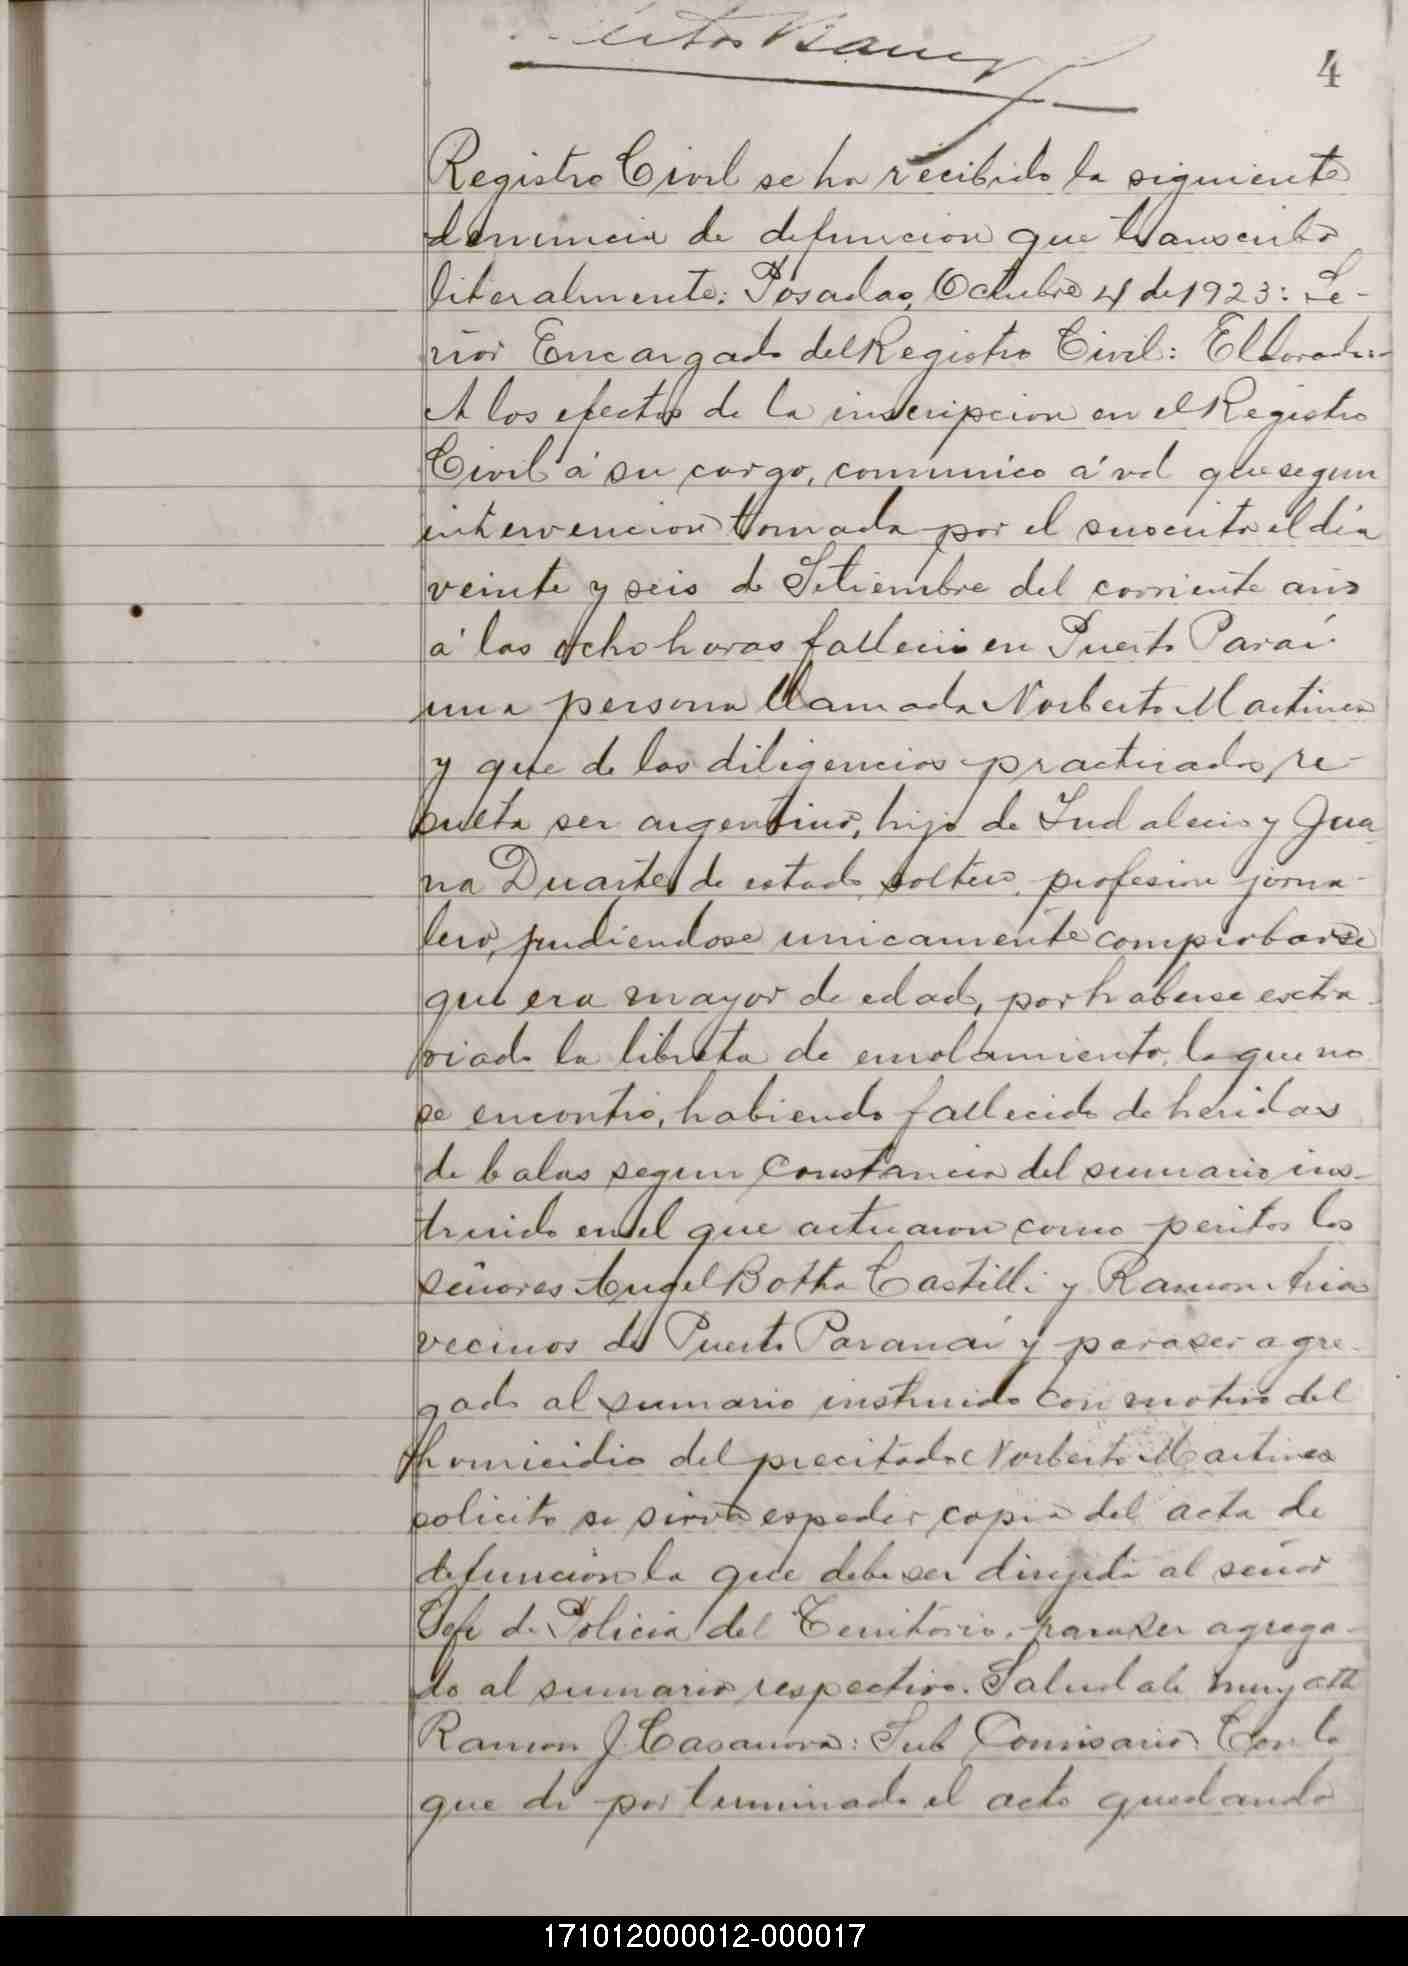 4
Registro Civil se ha recibido la siguiente
denuncia de defuncion que transcribo
literalmente: Posadas, Octubre 4 de 1923: Se-
ñor Encargado del Registro Civil: Eldorado:-
A los efectos de la inscripcion en el Registro
Civil á su cargo, comunico á vd que segun
intervencion tomada por el suscrito el día
veinte y seis de Setiembre del corriente año
á las ocho horas falleció en Puerto
una persona llamada Norberto Martinez
y que de las diligencias practicadas, re-
sulta ser argentino, hijo de Indalecio y Jua-
na Duarte, de estado soltero, profesion jorna-
lero, pudiendose unicamente comprobarse
que era mayor de edad, por haberse extra-
viado la libreta de enrolamiento, la que no
se encontró, habiendo fallecido de heridas
de balas segun constancia del sumario ins-
truido en el que actuaron como peritos los
señores Angel Botta Castilli y Ramon Arias
vecinos de Puerto Paranaí y para ser agre-
gado al sumario instruido con motivo del
homicidio del precitado Norberto Martinez
solicito se sirva espedir copia del acta de
defuncion la que debe ser dirijida al señor
Jefe de Policia del Territorio, para ser agrega-
do al sumario respectivo. Saluda á muy att
Ramon J. Casanova: Sub Comisario: Con lo
que di por terminado el acto quedando
171012000012-000017